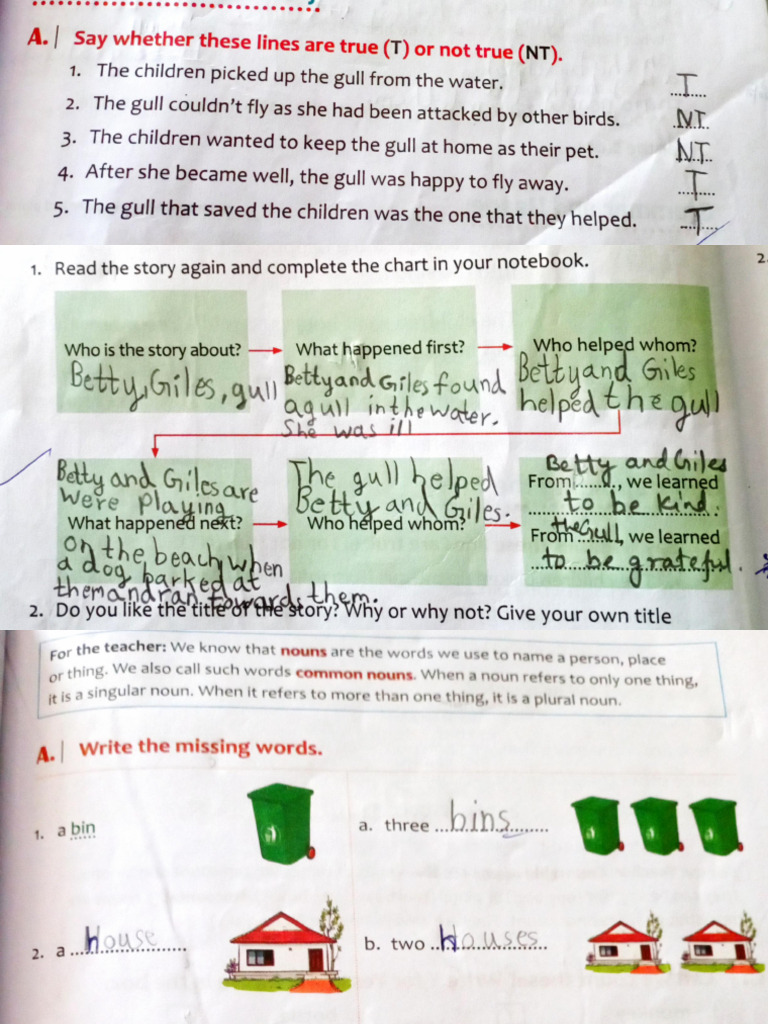 A. Say whether these lines are true (T) or not true (NT).
1. The children picked up the gull from the water. T
2. The gull couldn't fly as she had been attacked by other birds. NT
3. The children wanted to keep the gull at home as their pet. NT
4. After she became well, the gull was happy to fly away. T
5. The gull that saved the children was the one that they helped. T
1. Read the story again and complete the chart in your notebook.
2.
Who is the story about?
Betty, Giles, gull
What happened first?
Betty and Giles found
a gull in the water.
She was ill
Who helped whom?
Betty and Giles
helped the gull
Betty and Giles are
were playing
What happened next?
on the beach when
a dog barked at
them and ran towards them.
The gull helped
Betty and Giles.
Who helped whom?
Betty and Giles
From ........, we learned
to be kind.
From the Gull, we learned
to be grateful.
2. Do you like the title of the story? Why or why not? Give your own title
For the teacher: We know that nouns are the words we use to name a person, place
or thing. We also call such words common nouns. When a noun refers to only one thing,
it is a singular noun. When it refers to more than one thing, it is a plural noun.
A. Write the missing words.
1. a bin
a. three bins
2. a House
b. two Houses